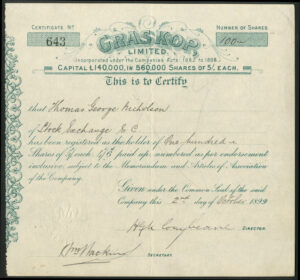 CERTIFICATE Nº
643
NUMBER OF SHARES
100
GRASKOP
LIMITED.
Incorporated under the Companies Acts, 1862 to 1898.
CAPITAL £140,000, IN 560,000 SHARES OF 5/- EACH.
This is to Certify
that Thomas George Nicholson
of Stock Exchange E.C.
has been registered as the holder of One hundred
Shares of each, paid up, numbered as per endorsement
inclusive, subject to the Memorandum and Articles of Association
of the Company.
Given under the Common Seal of the said
Company this 2nd day of October 1899
DIRECTOR
SECRETARY